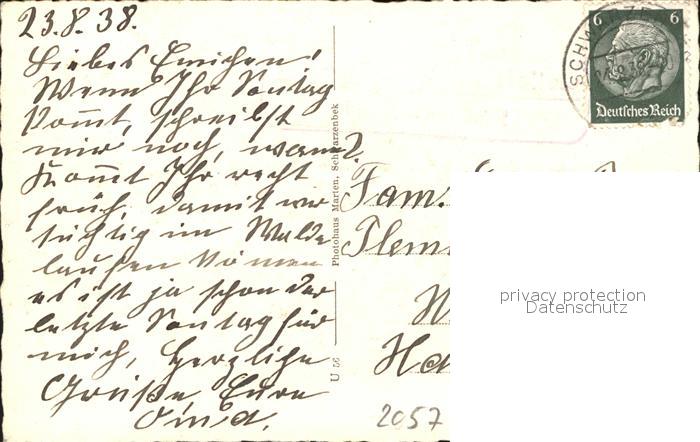 23.8.38.
Liebes Emichen!
Wenn Ihr Sontag
kommt, schreibst
mir noch, wann?
Kommt Ihr recht
früh, damit wir
tüchtig im Walde
laufen können
es ist ja schon der
letzte Sontag für
mich, Herzliche
Grüße, Eure
Photohaus Marten, Schwarzenbek
U 56
SCHWARZE
6 6
Deutsches Reich
Fam.
Flem
Ha
privacy protection
Datenschutz
2057